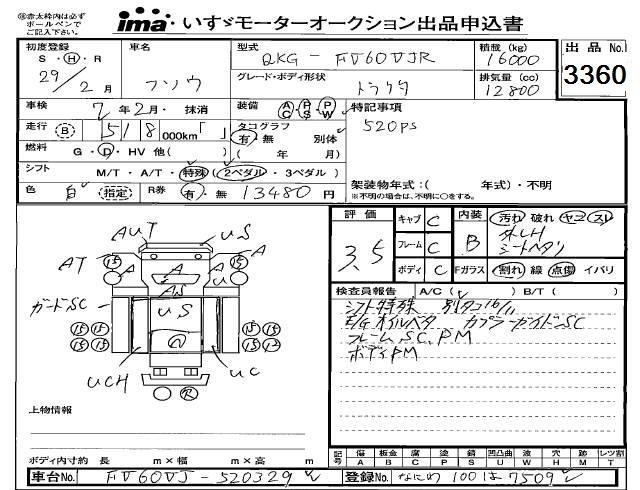 ㊟赤太枠内は必ず
ボールペンで
ご記入下さい。
ima いすゞモーターオークション出品申込書
初度登録 車名 型式 QKG - FV60VJR 積載 (kg) 16000 出品 No.
S・H・R 29年2月 フソウ グレード・ボディ形状 トラクタ 排気量 (cc) 12800 3360
車検 7年2月・抹消 装備 AC PS PW 特記事項
走行 (B) 518 000km「 」 タコグラフ 有・無 別体 520PS
燃料 G・D・HV 他( ) ( 年 月)
シフト M/T・A/T・特殊(2ペダル・3ペダル) 架装物年式:( 年式)・不明
色 白 (指定) R券 有・無 13480円 ※不明の場合は、不明に○をする。
評価 3.5
キャブ C 内装 B 汚れ 破れ ヤコゲ スレ
フレーム C ハンドル
ボディ C Fガラス 割れ 線 点傷 イバリ
検査員報告 A/C( レ ) B/T( )
シフト特殊 別タコ16/11
E/Gオイルベタ カプラーガイドSC
フレームSC, PM
ボディPM
AUT US
AT 15 A 15 A
A U
AS
ガードSC US
15 15 15 15
15 15 15 12
UCH UC
欠
上物情報
ボディ内寸約 長 m×幅 m×高 m
記号 傷 A 板金 B 腐 C 塗 P 錆 S 凹凸曲 U 波 W 穴 H 跡 M レンズ割 T
車台No. FV60VJ-520329 登録No. なにわ 100 は 7509